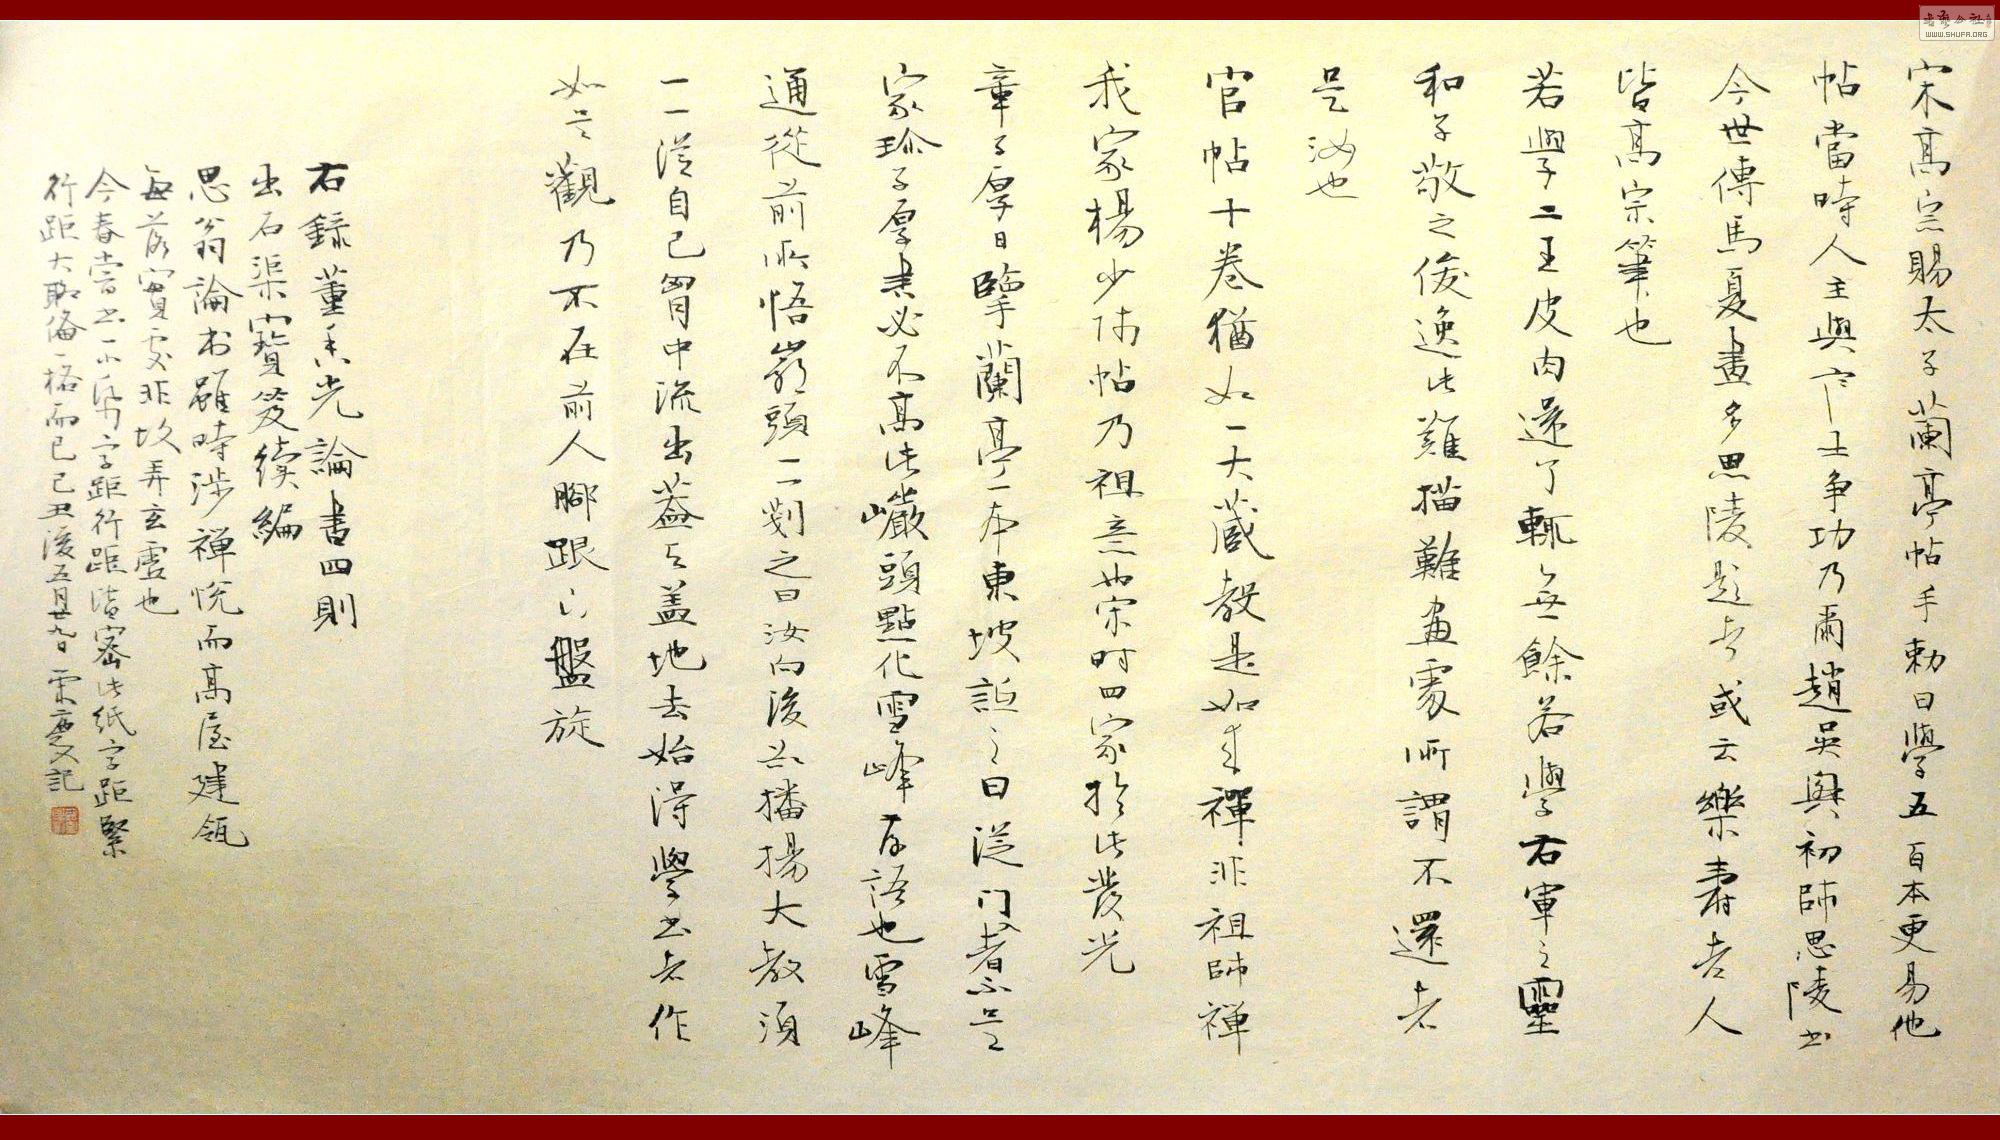 宋高宗賜太子蘭亭帖手勅曰學五百本更易他
帖當時人主與寒士爭功乃爾趙吳興初師思陵书
今世傳馬夏畫多思陵題者或云樂壽老人
皆高宗筆也
若學二王皮肉還了輒無餘若學右軍之靈
和子敬之俊逸此難描難畫處所謂不還者
是汝也
官帖十卷猶如一大藏教是如來禪非祖師禪
我家楊少師帖乃祖意也宋时四家於此發光
章子厚日臨蘭亭一本東坡訶之曰從门入者不是
家珍子厚書必不高此巖頭點化雪峰存語也雪峰
通從前所悟巖頭一一剗之曰汝向後欲播揚大教須
一一從自己胷中流出蓋天蓋地去始得學书者作
如是觀乃不在前人腳跟下盤旋
右録董香光論書四則
出石渠寶笈續編
思翁論书雖時涉禪悅而高屋建瓴
每落實處非故弄玄虛也
今春嘗书一小卷字距行距皆密此紙字距緊
行距大聊備一格而已己丑後五月廿九日 慶記
书法公社
WWW.SHUFA.ORG